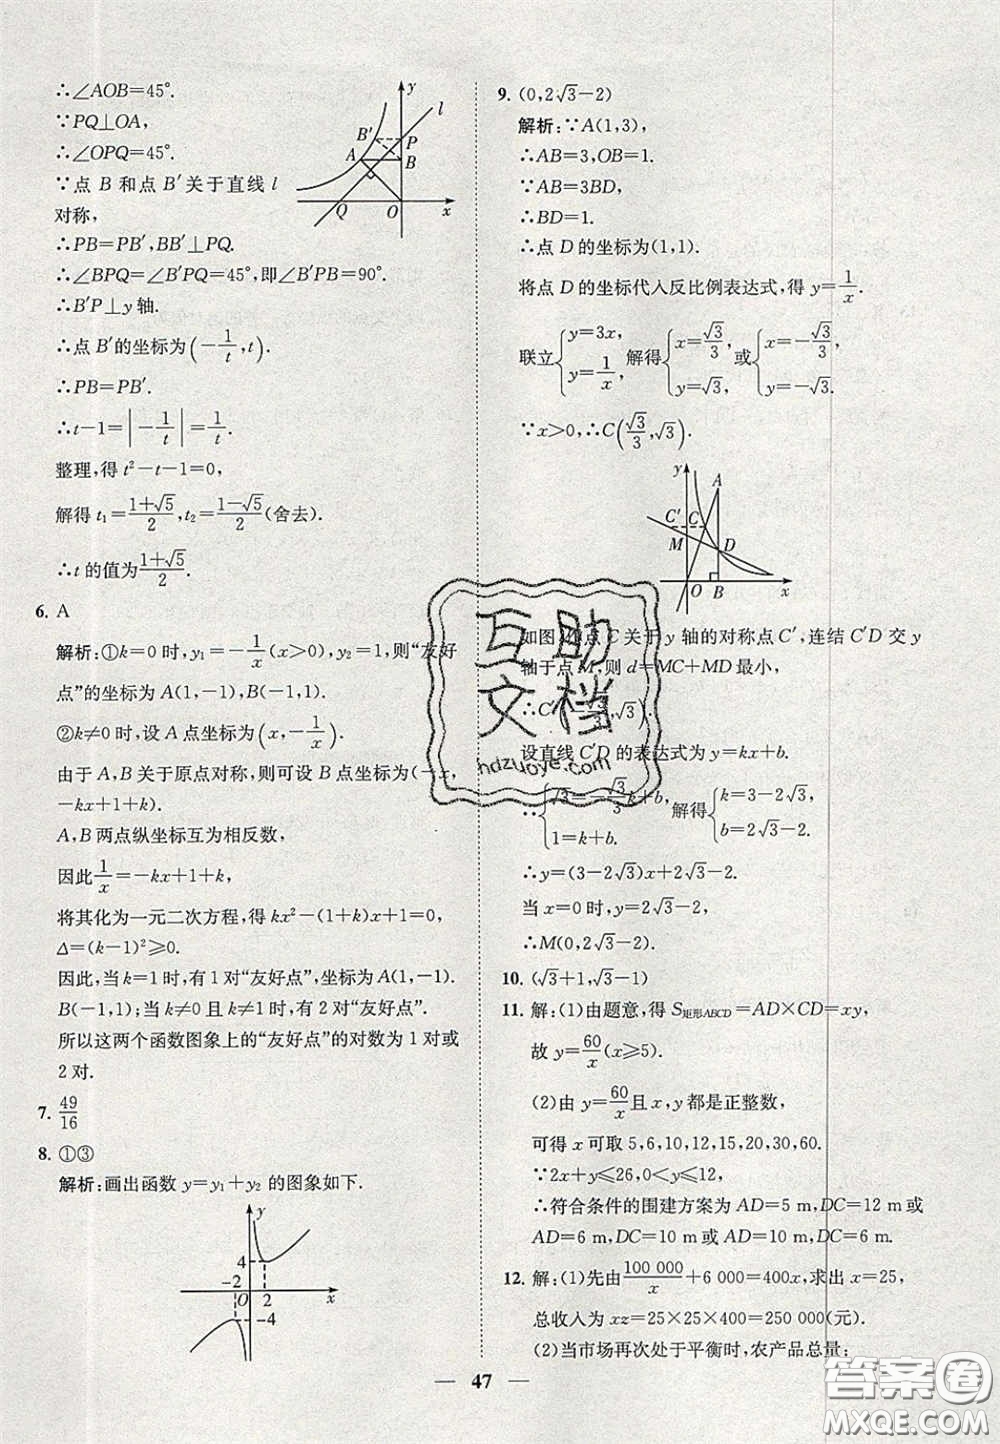 ∴∠AOB=45°.
∵PQ⊥OA,
∴∠OPQ=45°.
∵点 B 和点 B′关于直线 l
对称,
∴PB=PB′,BB′⊥PQ.
∴∠BPQ=∠B′PQ=45°,即∠B′PB=90°.
∴B′P⊥y 轴.
∴点 B′的坐标为(-1/t,t).
∴PB=PB′.
∴t-1=|-1/t|=1/t.
整理,得 t²-t-1=0,
解得 t₁=(1+√5)/2,t₂=(1-√5)/2(舍去).
∴t 的值为(1+√5)/2.
y
l
B′
P
A
B
Q
O
x
6. A
解析:①k=0 时,y₁=-1/x(x>0),y₂=1,则“友好
点”的坐标为 A(1,-1),B(-1,1).
②k≠0 时,设 A 点坐标为(x,-1/x).
由于 A,B 关于原点对称,则可设 B 点坐标为(-x,
-kx+1+k).
A,B 两点纵坐标互为相反数,
因此1/x=-kx+1+k,
将其化为一元二次方程,得 kx²-(1+k)x+1=0,
Δ=(k-1)²≥0.
因此,当 k=1 时,有 1 对“友好点”,坐标为 A(1,-1).
B(-1,1);当 k≠0 且 k≠1 时,有 2 对“友好点”.
所以这两个函数图象上的“友好点”的对数为 1 对或
2 对.
7. 49/16
8. ①③
解析:画出函数 y=y₁+y₂ 的图象如下.
y
4
-2
O
2
x
-4
9. (0,2√3-2)
解析:∵A(1,3),
∴AB=3,OB=1.
∵AB=3BD,
∴BD=1.
∴点 D 的坐标为(1,1).
将点 D 的坐标代入反比例表达式,得 y=1/x.
联立{y=3x, y=1/x, 解得{x=√3/3, y=√3, 或{x=-√3/3, y=-√3.
∵x>0,∴C(√3/3,√3).
y
A
C′
C
M
D
O
B
x
如图,作点 C 关于 y 轴的对称点 C′,连结 C′D 交 y
轴于点 M,则 d=MC+MD 最小,
∴C′(-√3/3,√3).
设直线 C′D 的表达式为 y=kx+b.
∴{√3=-√3/3k+b, 1=k+b. 解得{k=3-2√3, b=2√3-2.
∴y=(3-2√3)x+2√3-2.
当 x=0 时,y=2√3-2.
∴M(0,2√3-2).
10. (√3+1,√3-1)
11. 解:(1)由题意,得 S矩形ABCD=AD×CD=xy,
故 y=60/x(x≥5).
(2)由 y=60/x且 x,y 都是正整数,
可得 x 可取 5,6,10,12,15,20,30,60.
∵2x+y≤26,0<y≤12,
∴符合条件的围建方案为 AD=5 m,DC=12 m 或
AD=6 m,DC=10 m 或 AD=10 m,DC=6 m.
12. 解:(1)先由100 000/x+6 000=400x,求出 x=25,
总收入为 xz=25×25×400=250 000(元).
(2)当市场再次处于平衡时,农产品总量:
47
互助
文档
hdzuoye.com
答案圈
MXQE.COM